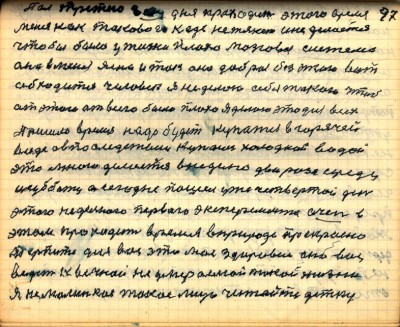 Пол третьего дня проходит этого время 97
меня как такового
чтобы было у жизни плохо мозговая система
она в меня ясна и так она добра без этого
обходится человек я не делаю себя такого чтоб
от этого от всего было плохо я делаю это для всех
Пришло время надо будет купатся в горячей
воде а впоследствии купатся холодной водой
это много делается введено два раза в среду
и субботу а сегодня пошел уже четвертой ден
этого недельного первого эксперимента Очен в
этом проходит время в природе прекрасно
терпить для вас это мое здоровие оно вас
ведет к вечной не умераемой такой жизни
Я не маленькая такое лицо читайте детку